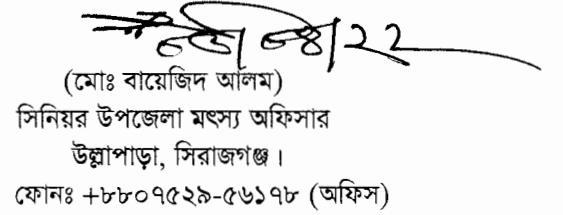 (মোঃ বায়েজিদ আলম)
সিনিয়র উপজেলা মৎস্য অফিসার
উল্লাপাড়া, সিরাজগঞ্জ।
ফোনঃ +৮৮০৭৫২৯-৫৬১৭৮ (অফিস)